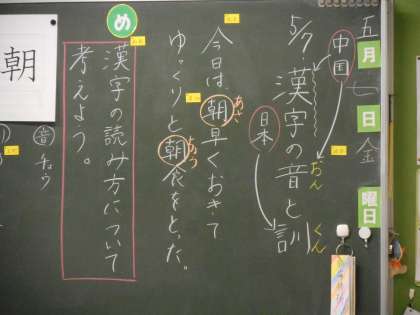 五月七日金曜日
中国
5/7 漢字の音と訓
おん
くん
日本
今日は朝早くおきて
あさ
ゆっくりと朝食をとった。
め
漢字の読み方について
考えよう。
朝
音 チョウ